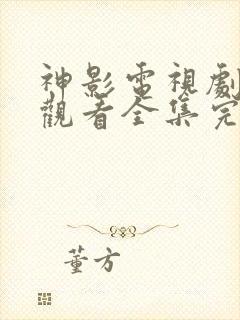 神影電視劇
觀看全集完
董方